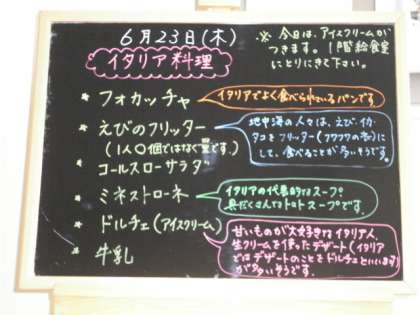 6月23日(木)
※ 今日は、アイスクリームが
つきます。1階給食室
にとりにきて下さい。
イタリア料理
* フォカッチャ
イタリアでよく食べられているパンです
* えびのフリッター
(1人○個ではなく量です。)
地中海の人々は、えび、イカ、
タコをフリッター(フワフワの衣)に
して、食べることが多いそうです。
コールスローサラダ
* ミネストローネ
イタリアの代表的なスープ。
具だくさんなトマトスープです。
* ドルチェ(アイスクリーム)
* 牛乳
甘いものが大好きなイタリア人。
生クリームを使ったデザート(イタリア
ではデザートのことをドルチェといいます)
が多いそうです。